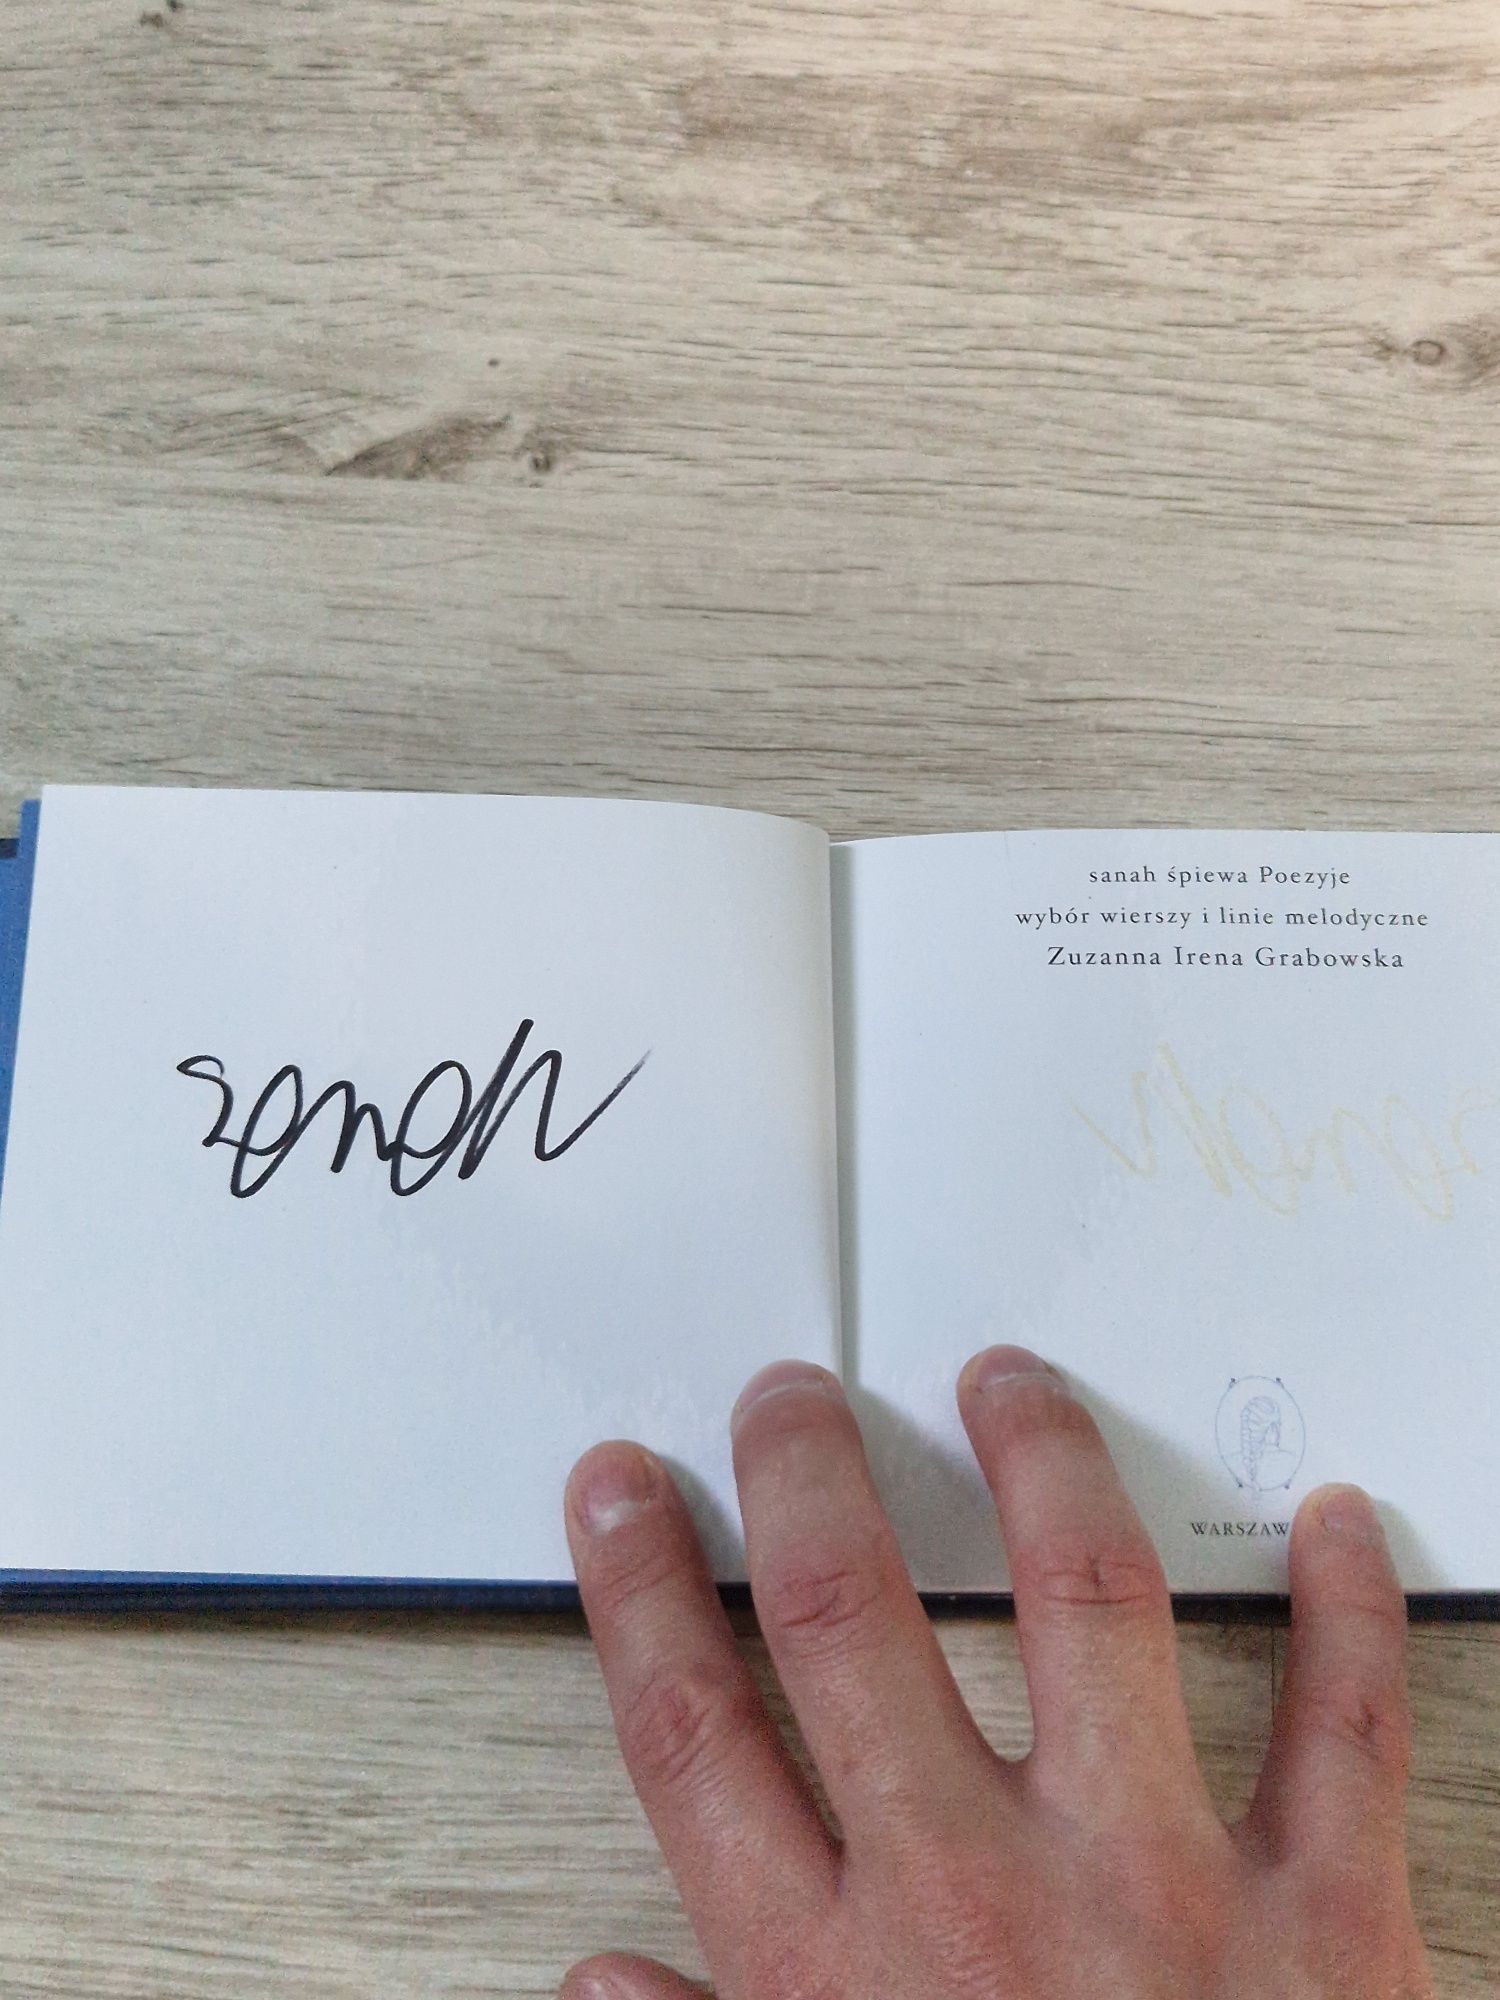 sanah
sanah śpiewa Poezyje
wybór wierszy i linie melodyczne
Zuzanna Irena Grabowska
WARSZAW